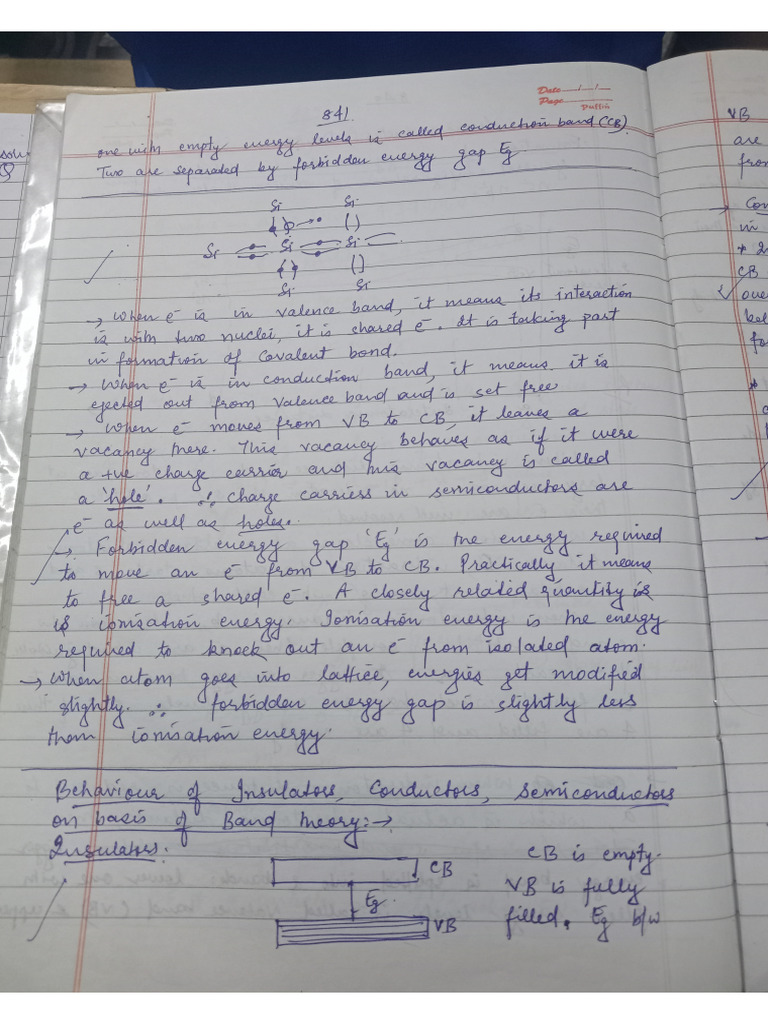 841
Date / /
Page
one with empty energy levels is called conduction band (CB).
Two are separated by forbidden energy gap Eg
Si Si
Si Si Si
Si Si
→ When e⁻ is in valence band, it means its interaction
is with two nuclei, it is shared e⁻. It is taking part
in formation of Covalent bond.
→ When e⁻ is in conduction band, it means it is
ejected out from valence band and is set free
→ When e⁻ moves from VB to CB, it leaves a
vacancy there. This vacancy behaves as if it were
a +ve charge carrier and this vacancy is called
a 'hole'. ∴ charge carriers in semiconductors are
e⁻ as well as holes.
→ Forbidden energy gap 'Eg' is the energy required
to move an e⁻ from VB to CB. Practically it means
to free a shared e⁻. A closely related quantity is
is ionisation energy. Ionisation energy is the energy
required to knock out an e⁻ from isolated atom.
→ When atom goes into lattice, energies get modified
slightly. ∴ forbidden energy gap is slightly less
than ionisation energy.
Behaviour of Insulators, Conductors, Semiconductors
on basis of Band theory:→
Insulators.
CB
Eg.
VB
CB is empty.
VB is fully
filled. Eg b/w
VB
are
from
→ Con
in
CB
over
bel
fo